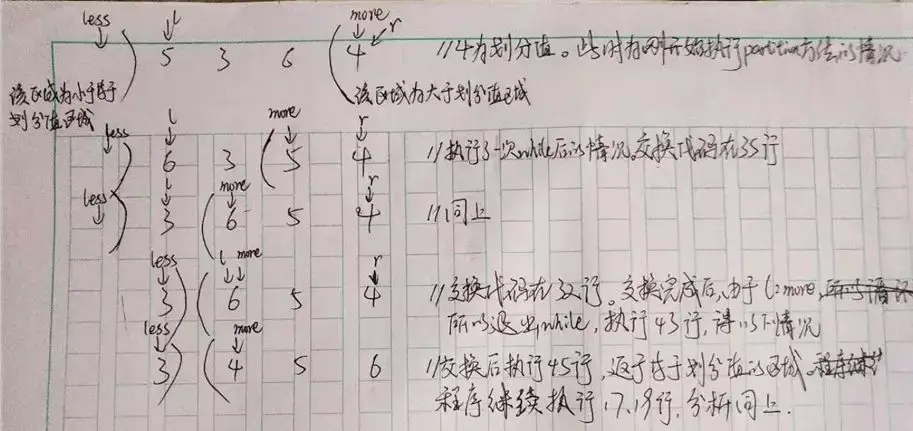 less l more
r
5 3 6 4 //4为划分值。此时为刚开始执行partition方法的情况
该区域为小于等于
划分值区域
该区域为大于划分值区域
less l more r
6 3 5 4 //执行了一次while后的情况。交换代码在35行
less l more r
3 6 5 4 //同上
less l more r
3 6 5 4 //交换代码在32行。交换完成后,由于l=more,
所以退出while,执行43行,得以下情况
less more
3 4 5 6 //交换后执行45行,返于等于划分值的区域
程序继续执行17、19行.分析同上.